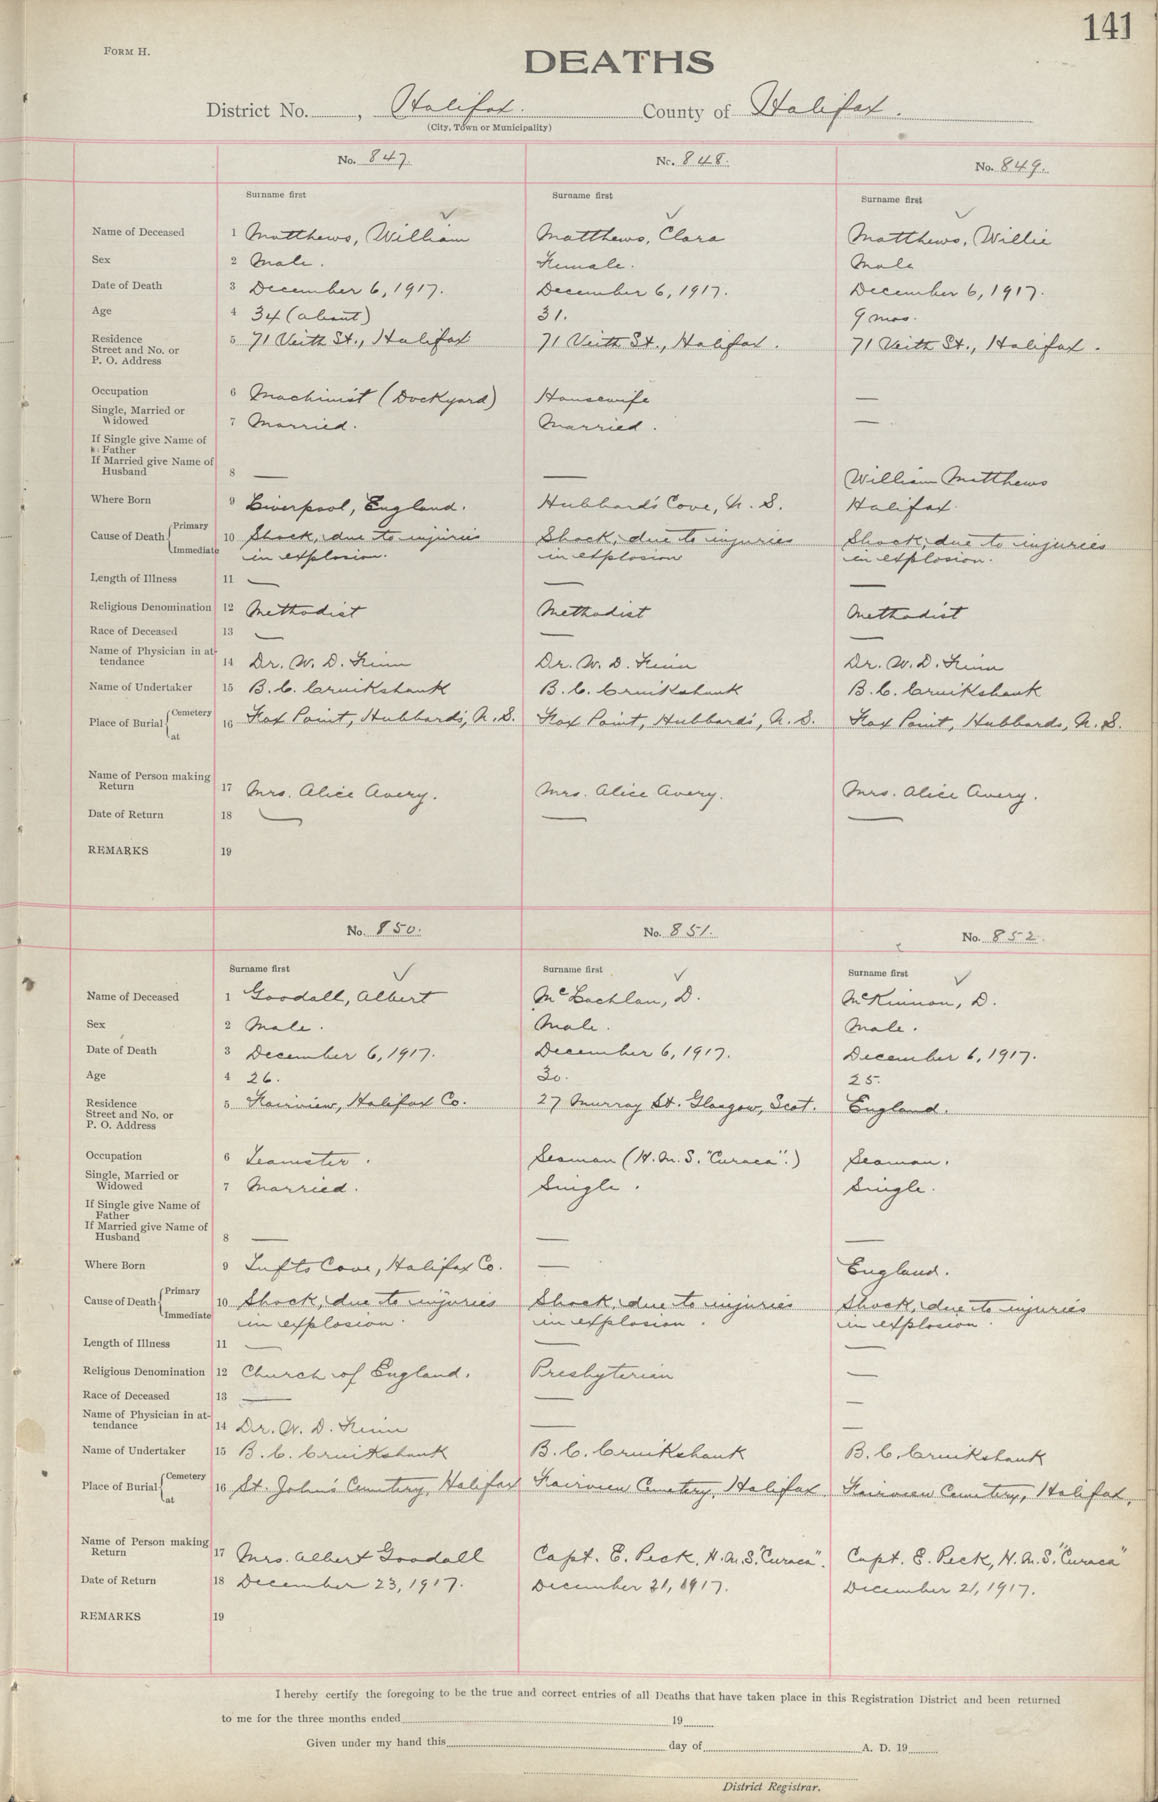 141
FORM H.
DEATHS
District No. , Halifax. County of Halifax.
(City, Town or Municipality)
No. 847. No. 848. No. 849.
Surname first Surname first Surname first
Name of Deceased 1 Matthews, William Matthews, Clara Matthews, Willie
Sex 2 Male. Female. Male
Date of Death 3 December 6, 1917. December 6, 1917. December 6, 1917.
Age 4 34 (about) 31. 9 mos.
Residence 5 71 Veith St., Halifax 71 Veith St., Halifax. 71 Veith St., Halifax.
Street and No. or
P. O. Address
Occupation 6 Machinist (Dockyard) Housewife —
Single, Married or
Widowed 7 Married. Married. —
If Single give Name of
Father
If Married give Name of
Husband 8 — — William Matthews
Where Born 9 Liverpool, England. Hubbard's Cove, N. S. Halifax.
Cause of Death { Primary Immediate 10 Shock, due to injuries Shock, due to injuries Shock, due to injuries
in explosion. in explosion in explosion.
Length of Illness 11 — — —
Religious Denomination 12 Methodist Methodist Methodist
Race of Deceased 13 — — —
Name of Physician in at-
tendance 14 Dr. W. D. Finn Dr. W. D. Finn Dr. W. D. Finn
Name of Undertaker 15 B. C. Cruikshank B. C. Cruikshank B. C. Cruikshank
Place of Burial { Cemetery at 16 Fox Point, Hubbard's, N. S. Fox Point, Hubbard's, N. S. Fox Point, Hubbards, N. S.
Name of Person making
Return 17 Mrs. Alice Avery. Mrs. Alice Avery. Mrs. Alice Avery.
Date of Return 18 — — —
REMARKS 19
No. 850. No. 851. No. 852.
Surname first Surname first Surname first
Name of Deceased 1 Goodall, Albert McLachlan, D. McKinnon, D.
Sex 2 Male. Male. Male.
Date of Death 3 December 6, 1917. December 6, 1917. December 6, 1917.
Age 4 26. 30. 25.
Residence 5 Fairview, Halifax Co. 27 Murray St. Glasgow, Scot. England.
Street and No. or
P. O. Address
Occupation 6 Teamster. Seaman (H.M.S. "Curaca".) Seaman.
Single, Married or
Widowed 7 Married. Single. Single.
If Single give Name of
Father
If Married give Name of
Husband 8 — — —
Where Born 9 Tufts Cove, Halifax Co. — England.
Cause of Death { Primary Immediate 10 Shock, due to injuries Shock, due to injuries Shock, due to injuries
in explosion. in explosion. in explosion.
Length of Illness 11 — — —
Religious Denomination 12 Church of England. Presbyterian —
Race of Deceased 13 — — —
Name of Physician in at-
tendance 14 Dr. W. D. Finn — —
Name of Undertaker 15 B. C. Cruikshank B. C. Cruikshank B. C. Cruikshank
Place of Burial { Cemetery at 16 St. John's Cemetery, Halifax Fairview Cemetery, Halifax Fairview Cemetery, Halifax.
Name of Person making
Return 17 Mrs. Albert Goodall Capt. E. Peck, H.M.S. "Curaca". Capt. E. Peck, H.M.S. "Curaca"
Date of Return 18 December 23, 1917. December 21, 1917. December 21, 1917.
REMARKS 19
I hereby certify the foregoing to be the true and correct entries of all Deaths that have taken place in this Registration District and been returned
to me for the three months ended 19
Given under my hand this day of A. D. 19
District Registrar.